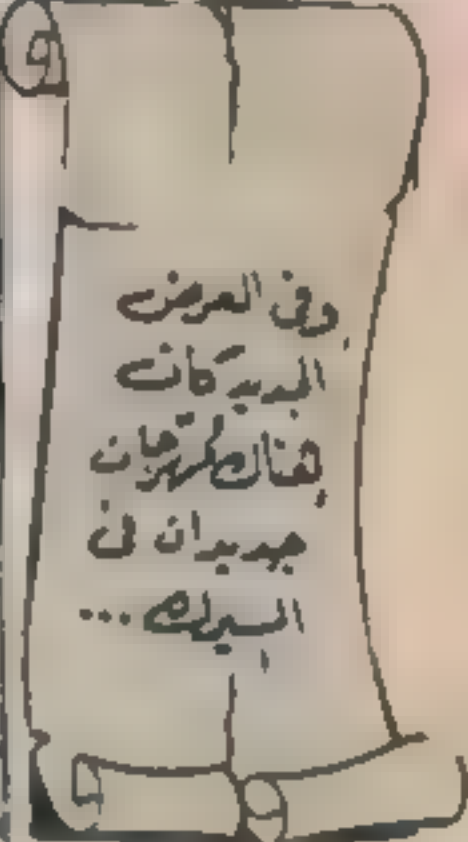 وفى العرض
الجديد كان
هناك مهرجان
جديدان فى
السيرك...